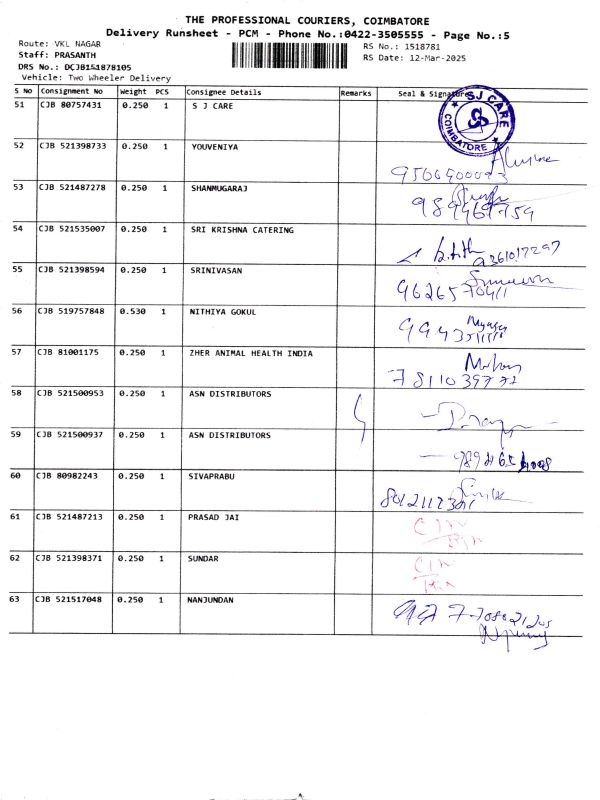 THE PROFESSIONAL COURIERS, COIMBATORE
Delivery Runsheet - PCM - Phone No.:0422-3505555 - Page No.:5
Route: VKL NAGAR
RS No.: 1518781
Staff: PRASANTH
RS Date: 12-Mar-2025
DRS No.: DCJB151878105
Vehicle: Two Wheeler Delivery
S No Consignment No Weight PCS Consignee Details Remarks Seal & Signature
51 CJB 80757431 0.250 1 S J CARE
SJ CARE
COIMBATORE
52 CJB 521398733 0.250 1 YOUVENIYA
53 CJB 521487278 0.250 1 SHANMUGARAJ
54 CJB 521535007 0.250 1 SRI KRISHNA CATERING
55 CJB 521398594 0.250 1 SRINIVASAN
56 CJB 519757848 0.530 1 NITHIYA GOKUL
57 CJB 81001175 0.250 1 ZHER ANIMAL HEALTH INDIA
58 CJB 521500953 0.250 1 ASN DISTRIBUTORS
59 CJB 521500937 0.250 1 ASN DISTRIBUTORS
60 CJB 80982243 0.250 1 SIVAPRABU
61 CJB 521487213 0.250 1 PRASAD JAI
62 CJB 521398371 0.250 1 SUNDAR
63 CJB 521517048 0.250 1 NANJUNDAN